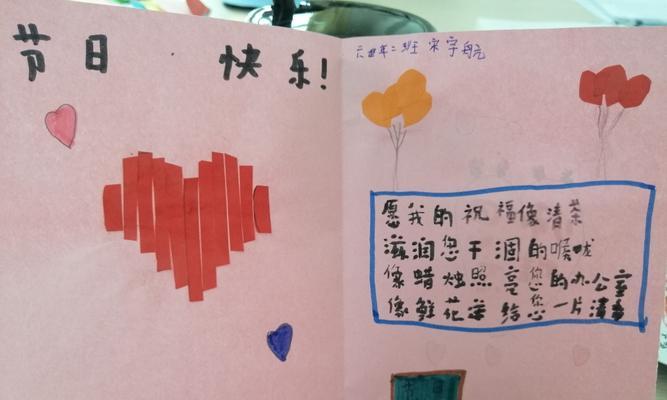 节日快乐!
年二班 宋宇航
愿我的祝福像清茶
滋润您干涸的喉咙
像蜡烛照亮您的办公室
像鲜花带给您一片清香